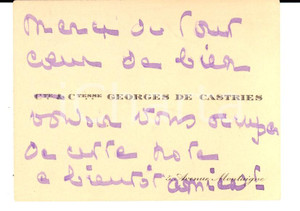 Merci de tout
cœur de bien
CTE & CTESSE GEORGES DE CASTRIES
vouloir vous occuper
de cette note
Avenue Montaigne
à bientôt amical